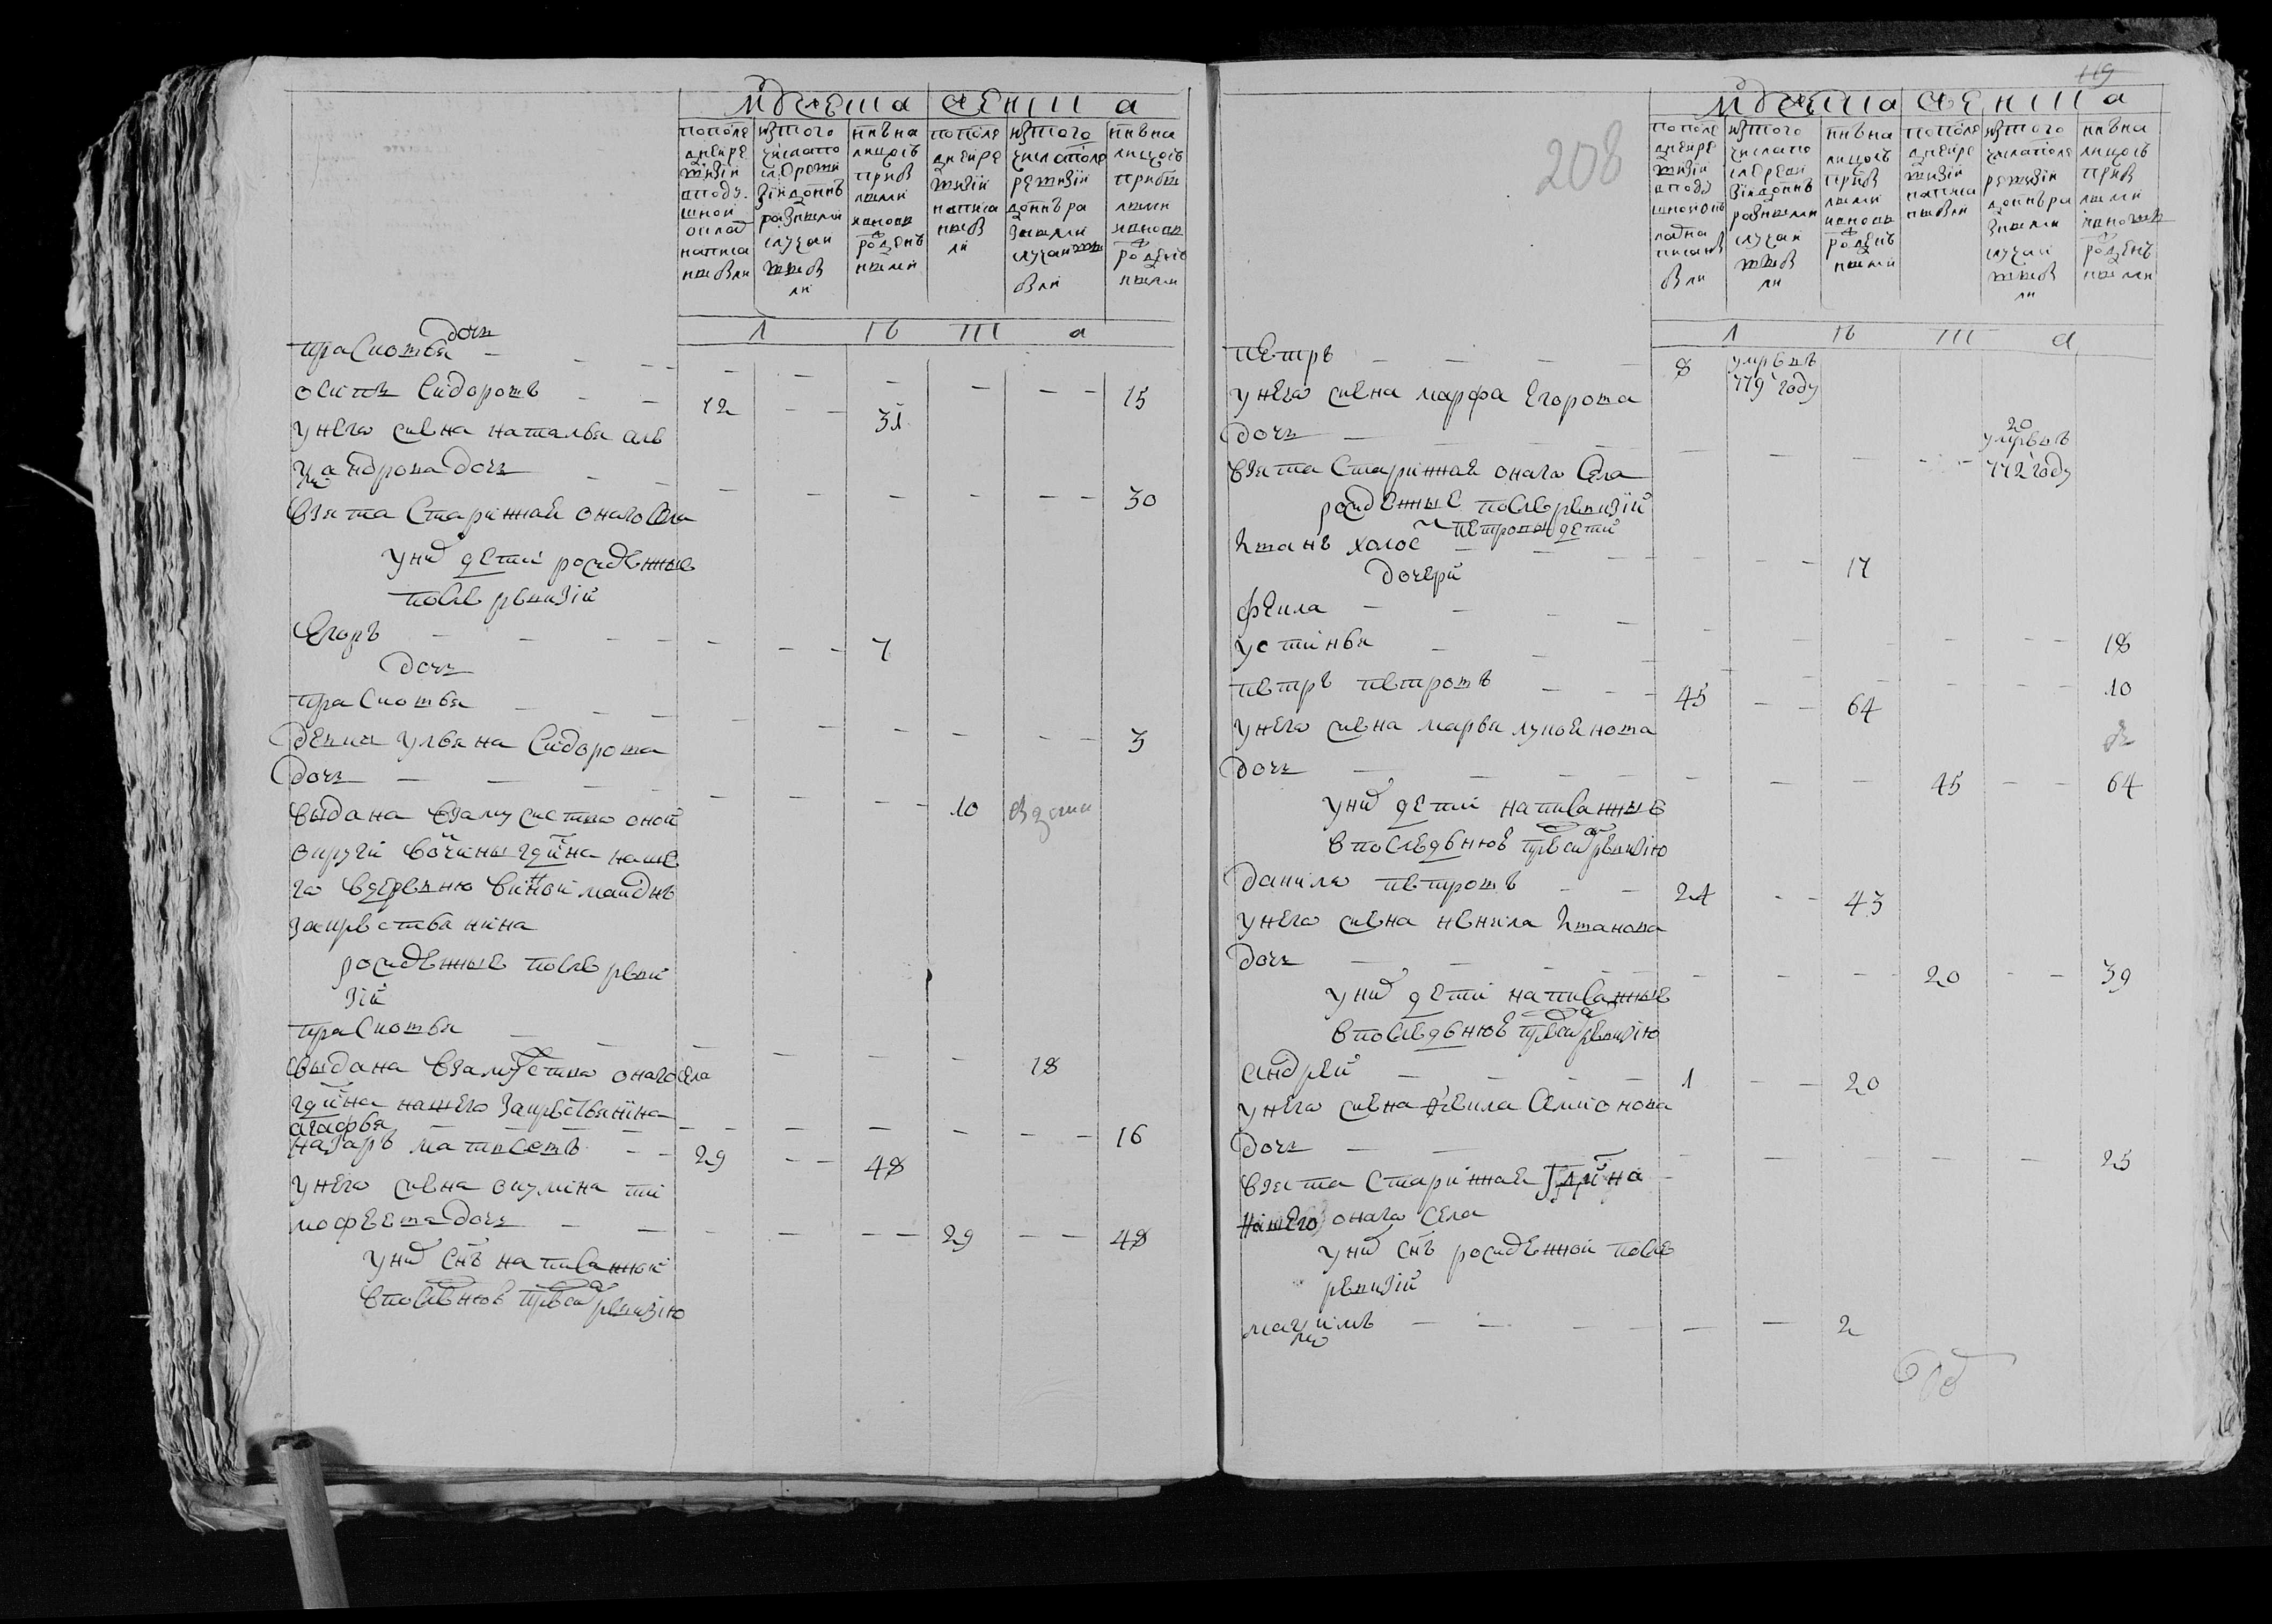 мужеска женска
по после
дней ре
визии
в поду
шной
оклад
написа
ны были
из того
числа по
сле реви
зии до ныне
разными
случаи
выбы
ли
ныне на
лицо съ
прибы
лыми
и вновь
рожден
ными
по после
дней ре
визии
написа
ны бы
ли
из того
числа после
ревизии
до ныне ра
зными
случаи вы
были
ныне на
лицо съ
прибы
лыми
и вновь
рожден
ными
1 2 3 4
дочь
Прасковья — — — — — — — — 15
Осипъ Сидоровъ — — 12 — — 31
у него жена Наталья Але
ксандрова дочь — — — — — — — 30
взята старинная онаго села
у них дети рожденные
после ревизии
Егоръ — — — — — 7
дочь
Прасковья — — — — — — — 3
девка Ульяна Сидорова
дочь — — — — — 10
выдана в замужство оной
округи вотчины гдина наше
го в деревню
за крестьянина
рожденные после реви
зии
Прасковья — — — — — 18
выдана в замужство онаго села
гдина нашего за крестьянина
Агафья — — — — — — — 16
Назаръ Матвеевъ — — 29 — — 48
у него жена Акулина Ти
мофеева дочь — — — — — 29 — — 48
у них снъ написанной
в последнюю пред сим ревизию
119
208
мужеска женска
по после
дней ре
визии
в поду
шной ок
лад на
писаны
были
из того
числа по
сле реви
зии до ныне
разными
случаи
выбы
ли
ныне на
лицо съ
прибы
лыми
и вновь
рожден
ными
по после
дней ре
визии
написа
ны были
из того
числа после
ревизии
до ныне ра
зными
случаи
выбы
ли
ныне на
лицо съ
прибы
лыми
и вновь
рожден
ными
1 2 3 4
Петръ — — — 8 умре въ
779 году
у него жена Марфа Егорова
дочь — — — — — — 20 умре въ
772 году
взята старинная онаго села
рожденные после ревизии
Петровы дети
Иванъ холос — — — — — 17
дочери
Фекла — — — — — — — 18
Устинья — — — — — — — 10
Петръ Петровъ — — 45 — — 64
у него жена Марья Лукоянова
дочь — — — — — 45 — — 64
у них дети написанные
в последнюю пред сим ревизию
Данила Петровъ — — 24 — — 43
у него жена Ненила Иванова
дочь — — — — — 20 — — 39
у них дети написанные
в последнюю пред сим ревизию
Андрей — — — 1 — — 20
у него жена Фекла Семионова
дочь — — — — — — — 25
взята старинная гдина
нашего онаго села
у них снъ рожденной после
ревизии
Максимъ — — — — — 2